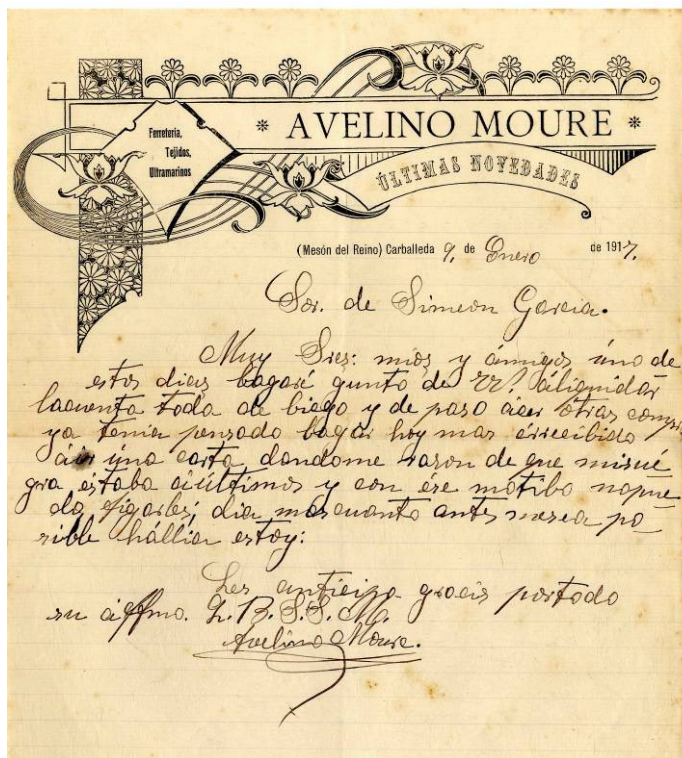 Ferretería,
Tejidos,
Ultramarinos
* AVELINO MOURE *
ÚLTIMAS NOVEDADES
(Mesón del Reino) Carballeda 9, de Enero de 1917.
Sor. de Simeon Garcia.
Muy Sres: mios y ámigos úno de
estos dias bagaré gunto de VV. áliquidar
lacuenta toda de biego y de paso ácer ótras compr
ya tenia pensado bagár hoy mas érrecibido
una carta dandome razon de que misué
gra éstaba aúltimos y con ese motibo nopue
do figarles; dia mascuanto antes mesea po_
sible hállia estoy:
Les anticipo gracis portodo
su áffmo. Q. B. S. S. M.
Avelino Moure.